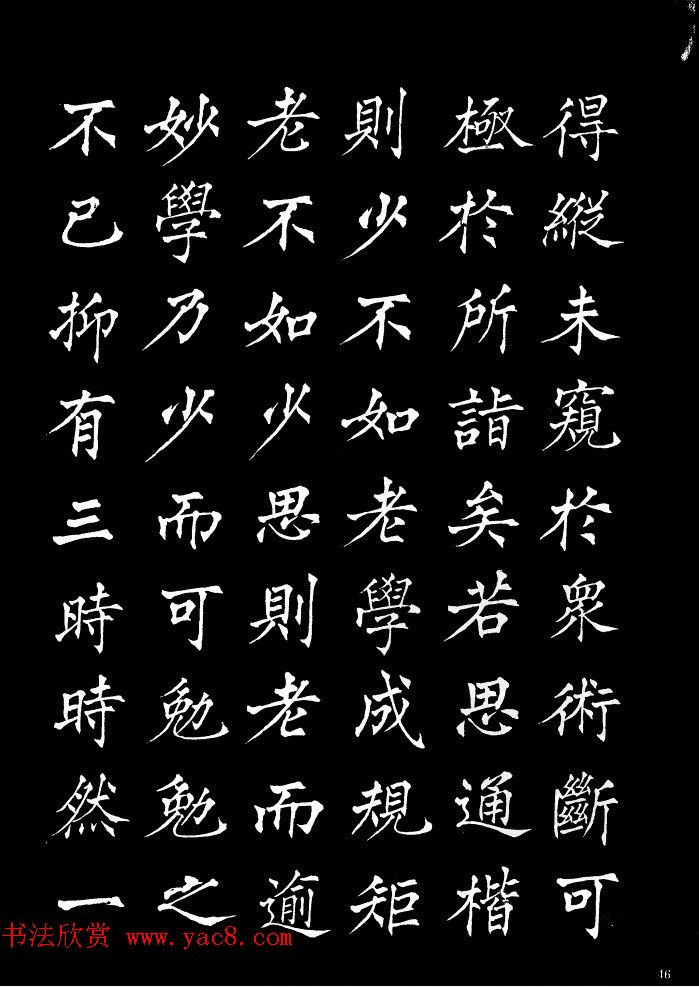 得縱未窺於眾術斷可
極於所詣矣若思通楷
則少不如老學成規矩
老不如少思則老而逾
妙學乃少而可勉勉之
不已抑有三時時然一
书法欣赏 www.yac8.com
16